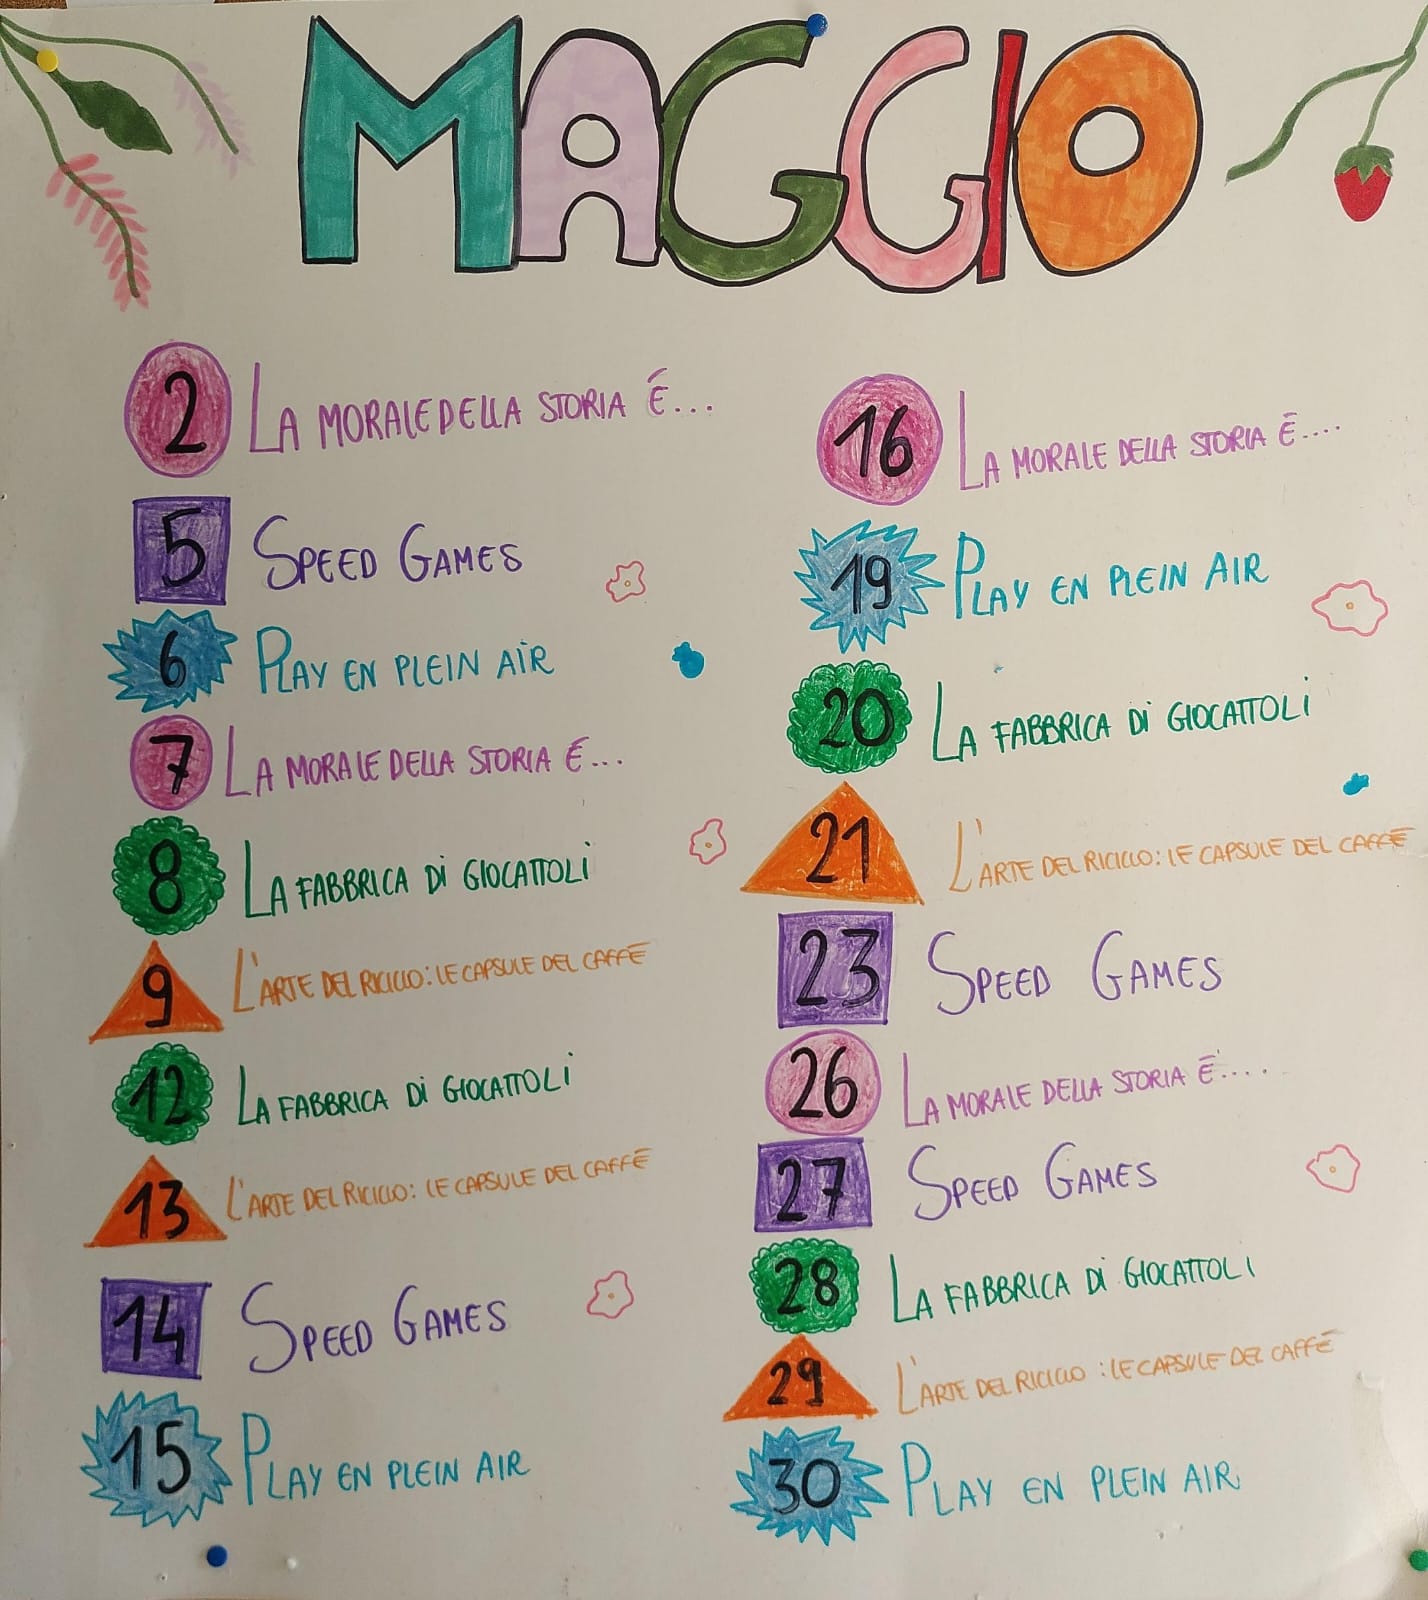 MAGGIO
2 LA MORALE DELLA STORIA É...
5 SPEED GAMES
6 PLAY EN PLEIN AIR
7 LA MORALE DELLA STORIA É...
8 LA FABBRICA Di GIOCATTOLi
9 L'ARTE DEL RICICLO: LE CAPSULE DEL CAFFÈ
12 LA FABBRICA Di GIOCATTOLi
13 L'ARTE DEL RICICLO: LE CAPSULE DEL CAFFÈ
14 SPEED GAMES
15 PLAY EN PLEIN AIR
16 LA MORALE DELLA STORIA É....
19 PLAY EN PLEIN AIR
20 LA FABBRICA Di GIOCATTOLi
21 L'ARTE DEL RICICLO: LE CAPSULE DEL CAFFÈ
23 SPEED GAMES
26 LA MORALE DELLA STORIA É.....
27 SPEED GAMES
28 LA FABBRICA Di GIOCATTOLI
29 L'ARTE DEL RICICLO: LE CAPSULE DEL CAFFÈ
30 PLAY EN PLEIN AIR